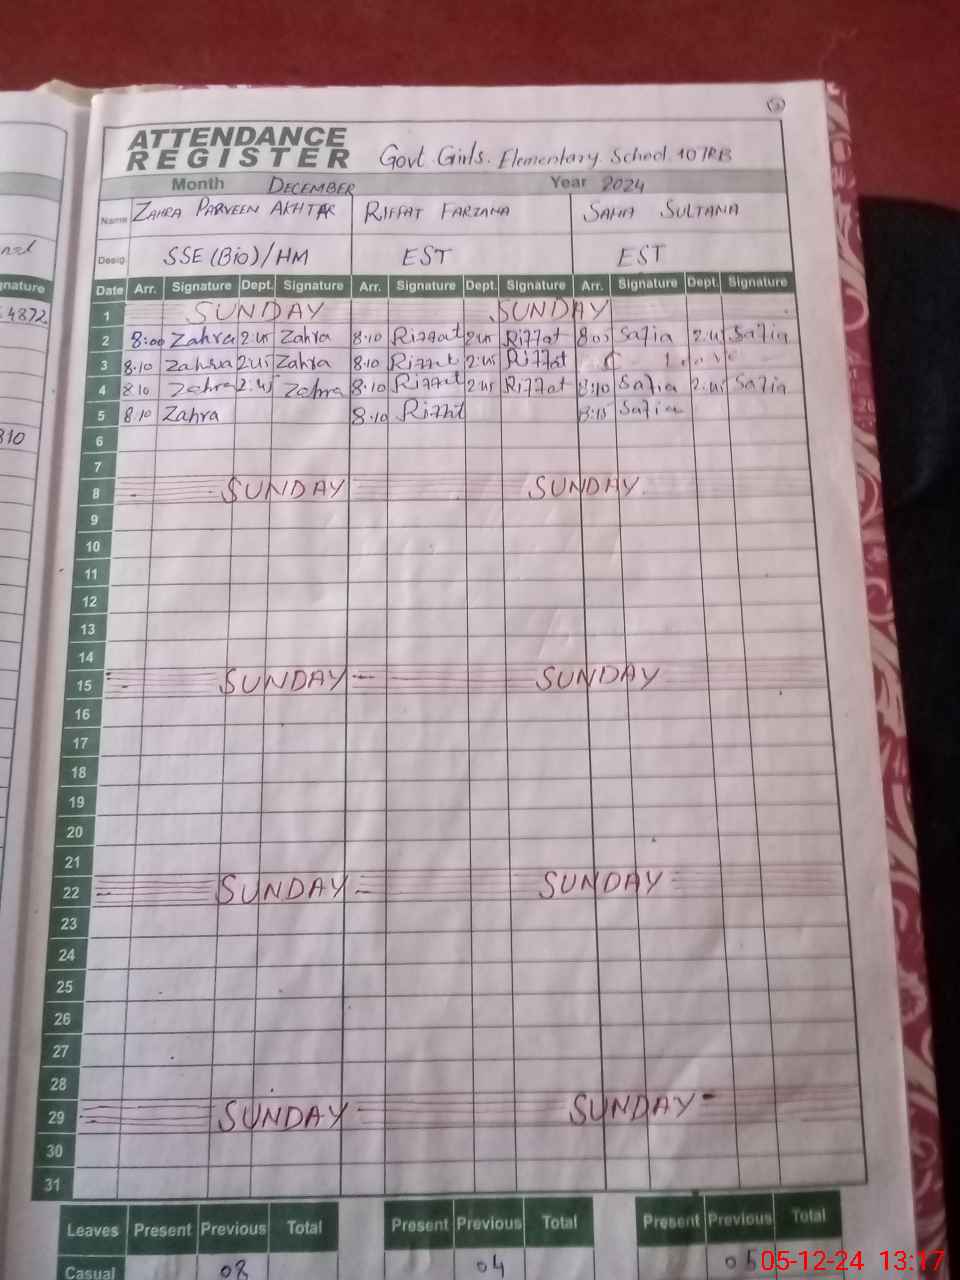 ATTENDANCE
REGISTER
Govt Girls. Elementary School 107RB
Month DECEMBER Year 2024
Name ZAHRA PARVEEN AKHTAR RIFFAT FARZANA SULTANA
Desig. SSE (Bio)/HM EST EST
Date Arr. Signature Dept. Signature Arr. Signature Dept. Signature Arr. Signature Dept. Signature
1 SUNDAY SUNDAY
2 8:00 Zahra 2:45 Zahra 8:10 Riffat 2:45 Riffat 8:05 Safia 2:45 Safia
3 8:10 Zahra 2:45 Zahra 8:10 Riffat 2:45 Riffat C leave
4 8:10 Zahra 2:45 Zahra 8:10 Riffat 2:45 Riffat 8:10 Safia 2:45 Safia
5 8:10 Zahra 8:10 Riffat 8:15 Safia
6
7
8 SUNDAY SUNDAY
9
10
11
12
13
14
15 SUNDAY SUNDAY
16
17
18
19
20
21
22 SUNDAY SUNDAY
23
24
25
26
27
28
29 SUNDAY SUNDAY
30
31
Leaves Present Previous Total Present Previous Total Present Previous Total
Casual 08 04 05
05-12-24 13:17
nature
4872
810